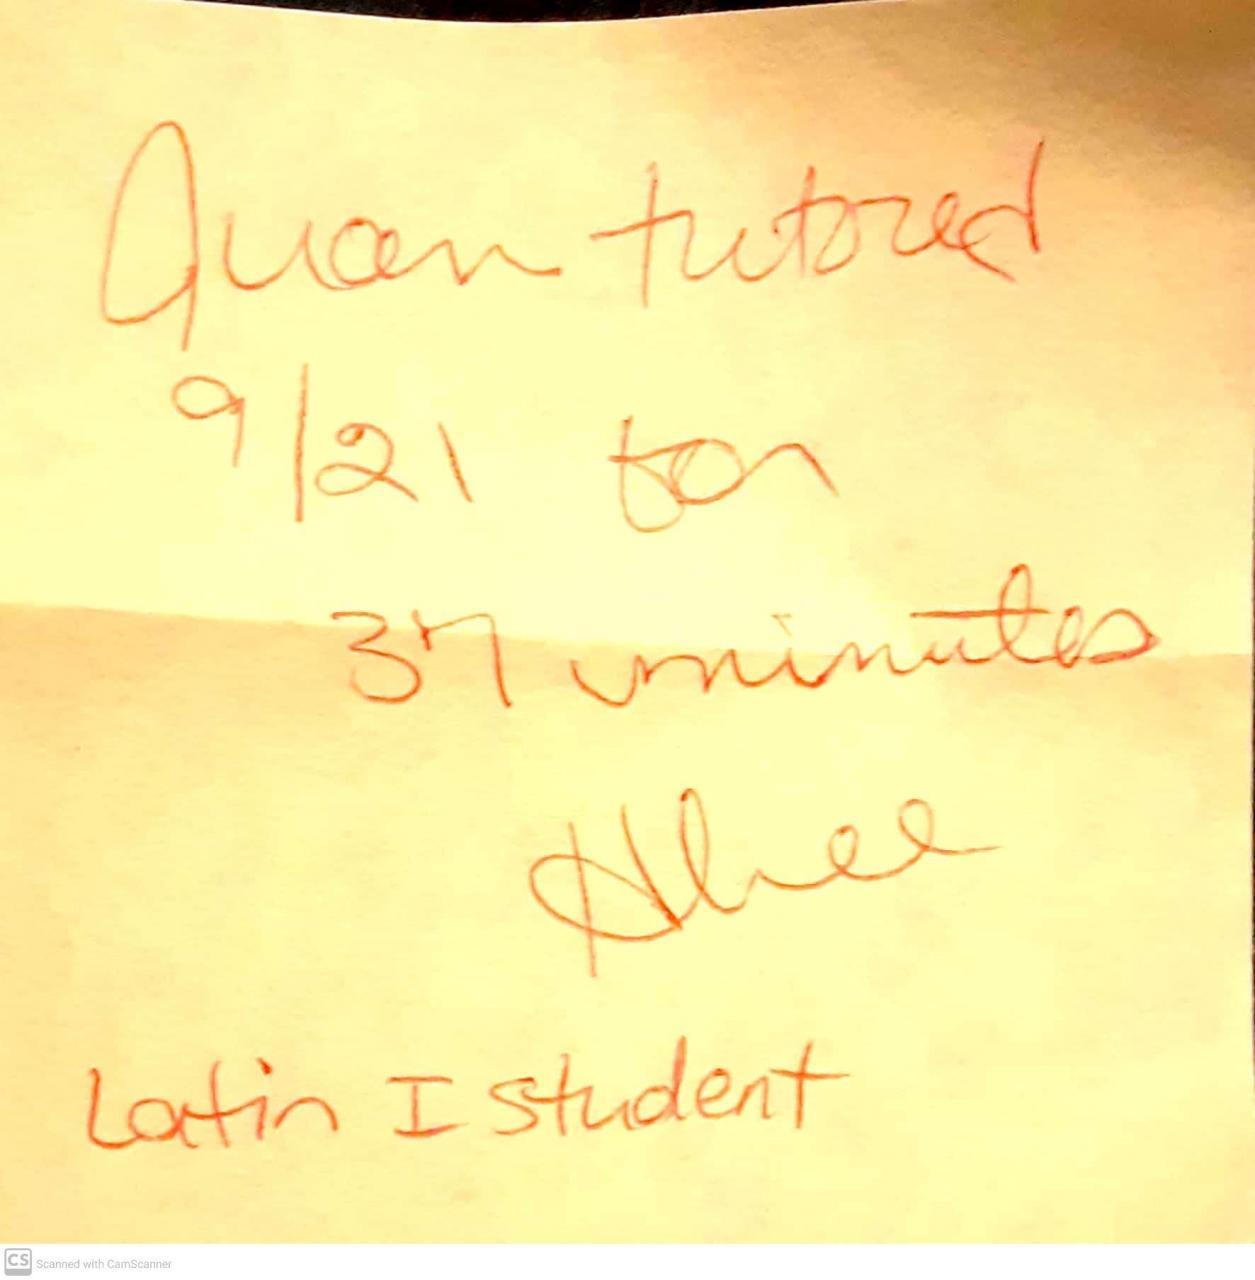 Quan tutored
9/21 for
37 minutes
Latin I student
CS Scanned with CamScanner